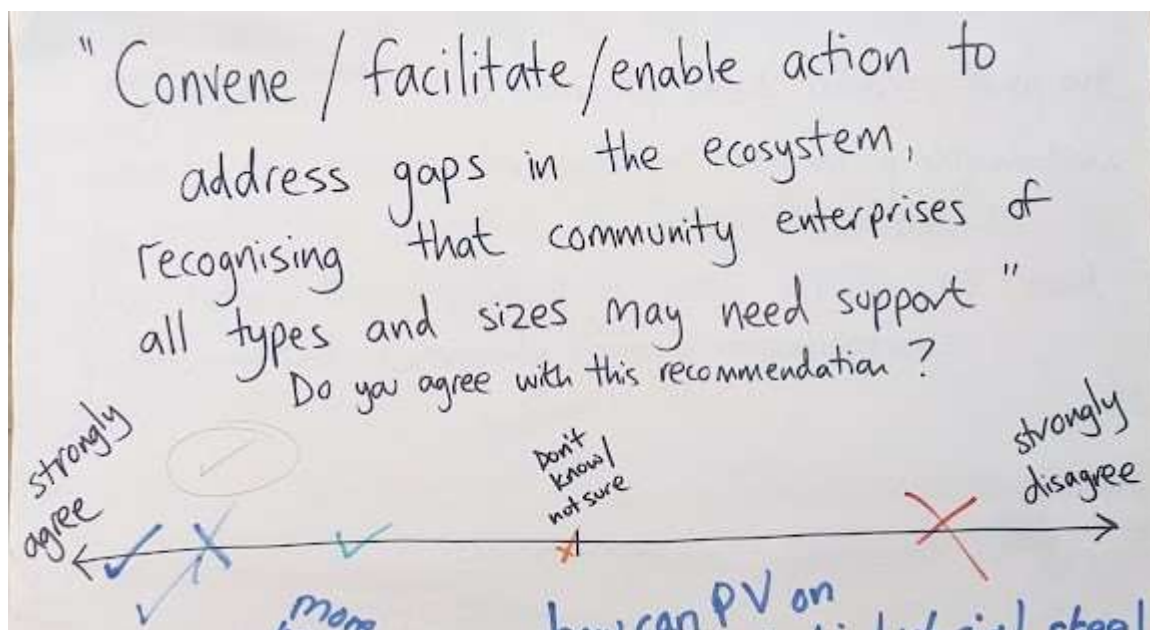 "Convene / facilitate/enable action to
address gaps in the ecosystem,
recognising that community enterprises of
all types and sizes may need support"
Do you agree with this recommendation?
strongly
agree
Don't
know/
not sure
strongly
disagree
more
how can PV on
steel